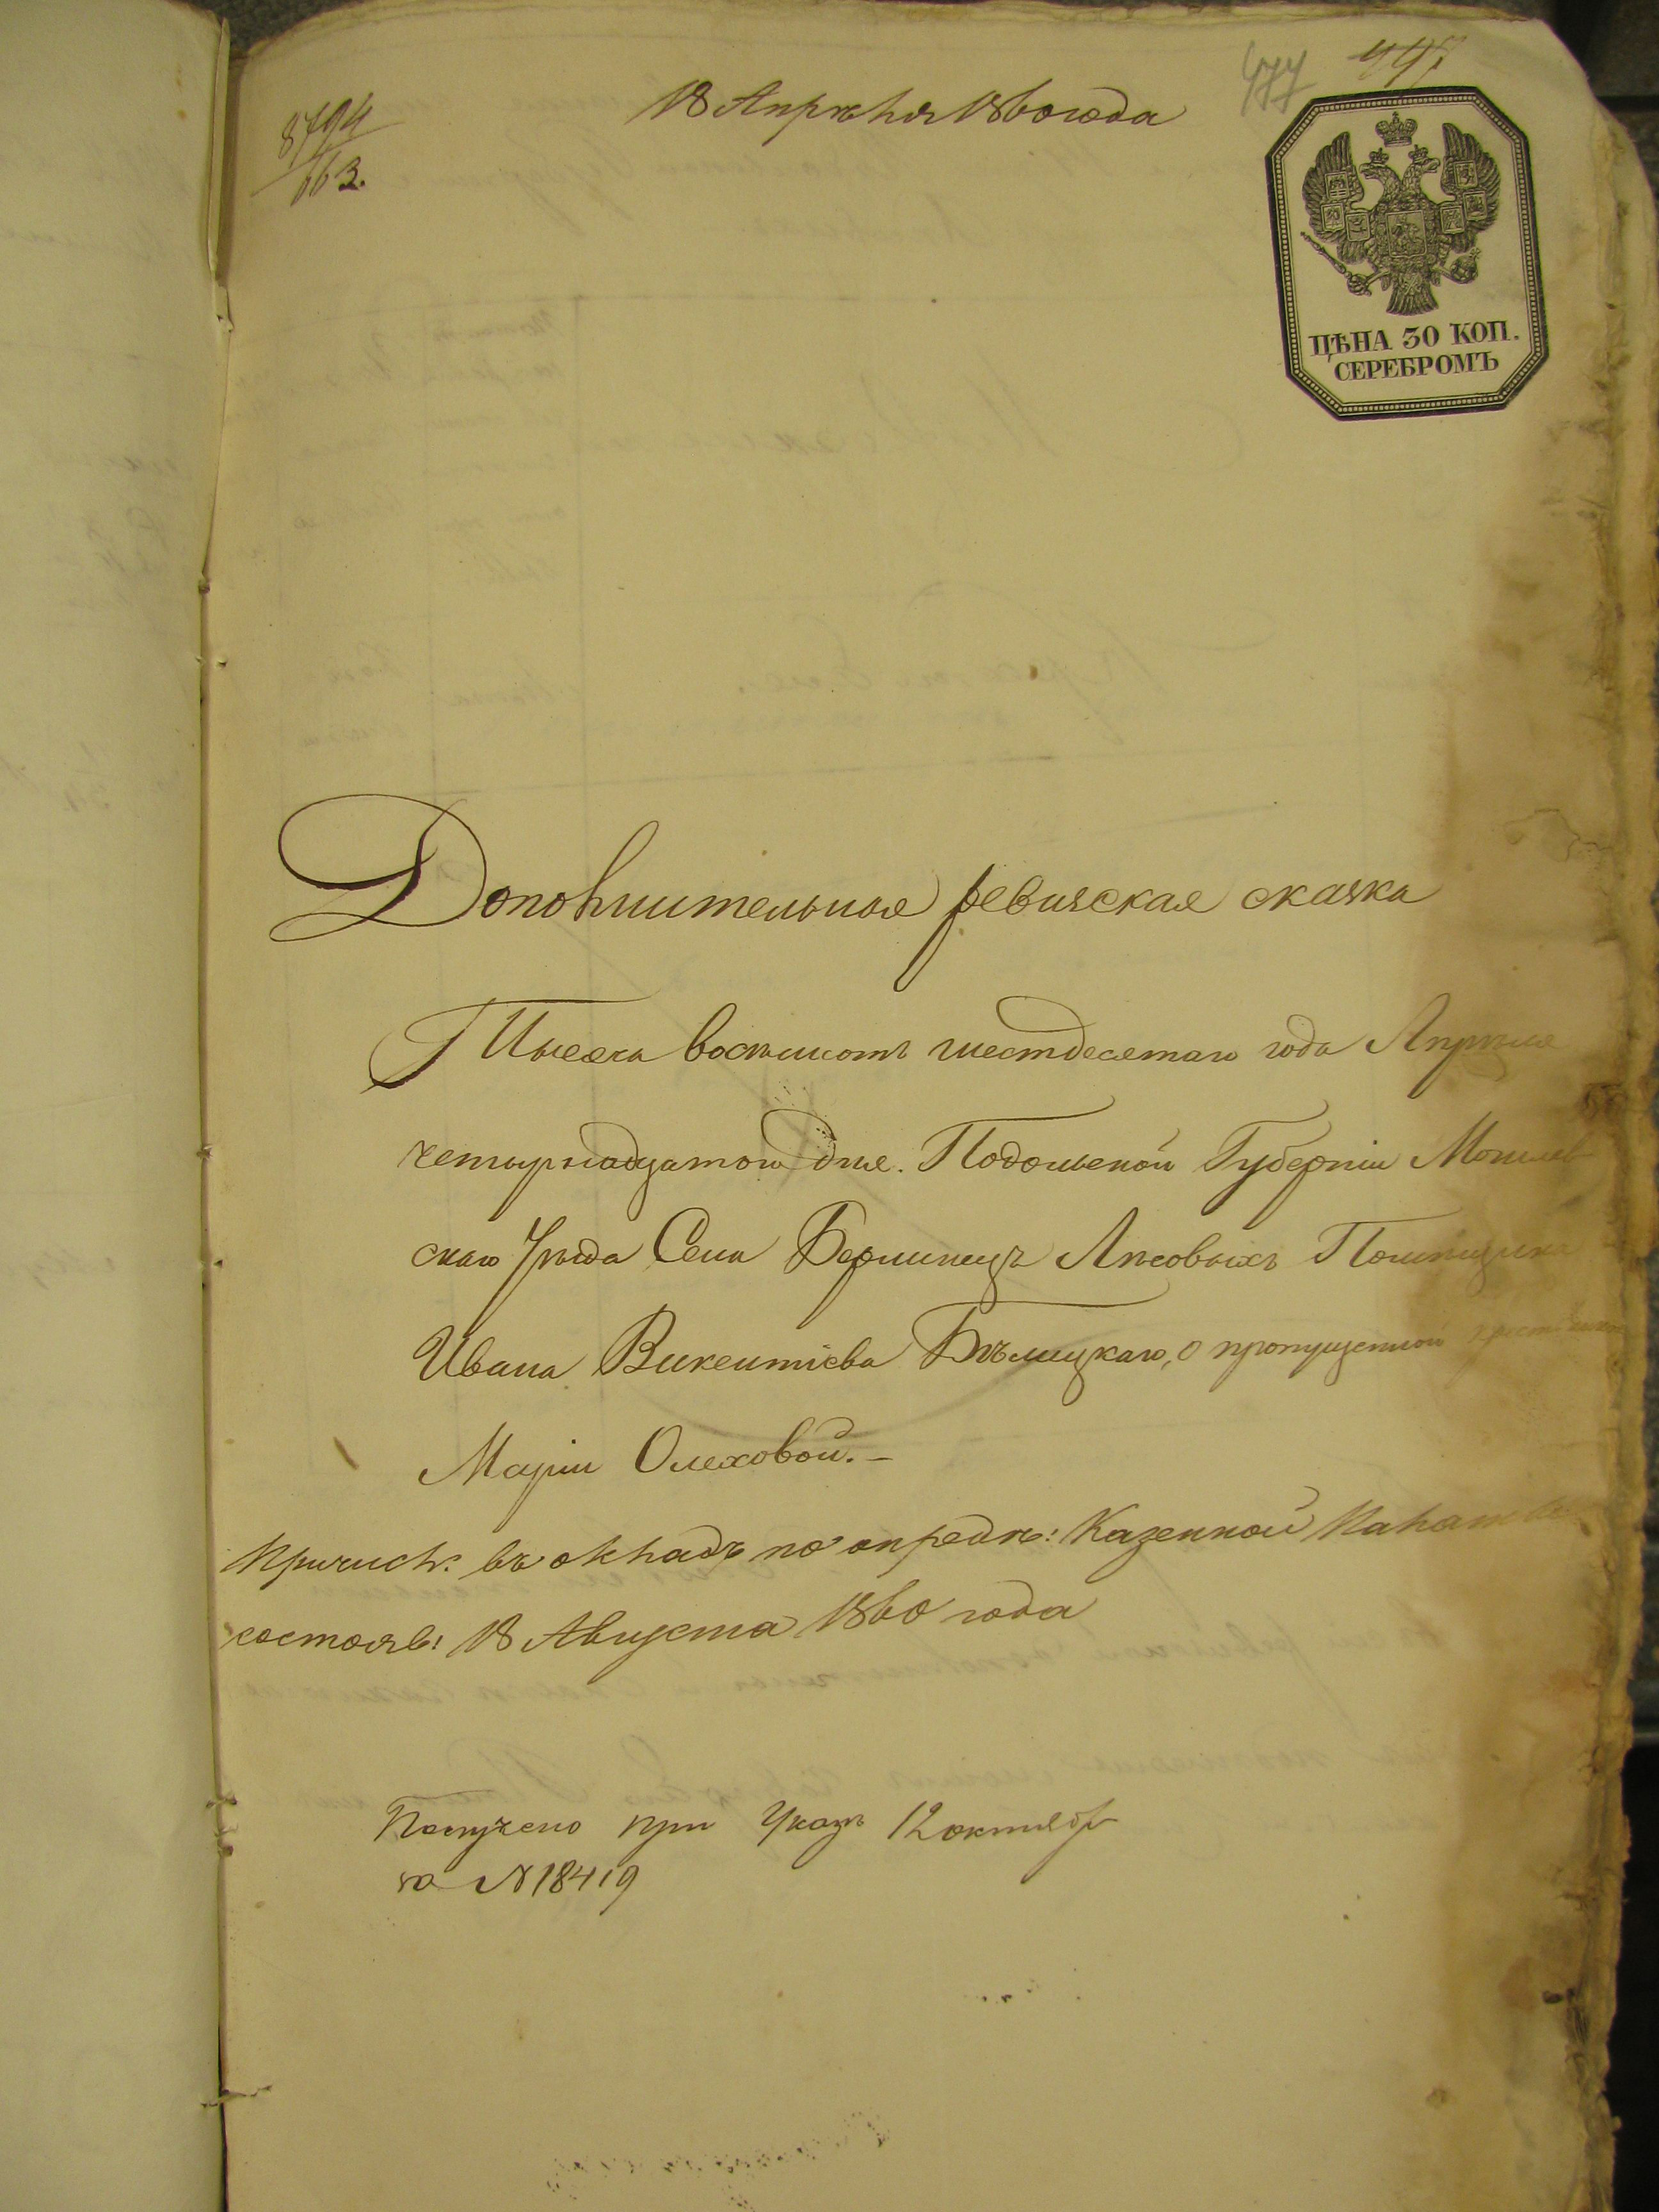 477 447
18 Апрѣля 1860 года
8794
163.
ЦѢНА 30 КОП.
СЕРЕБРОМЪ
Дополнительная ревизская сказка
Тысяча восемьсотъ шестдесятаго года Апрѣля
четырнадцатого дня. Подольской Губерніи Могилев
скаго Уѣзда Села Берлинецъ Лѣсовыхъ Помѣщика
Ивана Викентіева Бѣлицкаго, о пропущенной
Маріи Олеховой. –
Причисл: въ окладъ по опредѣ: Казенной Палаты
состояв: 18 Августа 1860 года
Получено при Указѣ 12 октябр
за N 18419